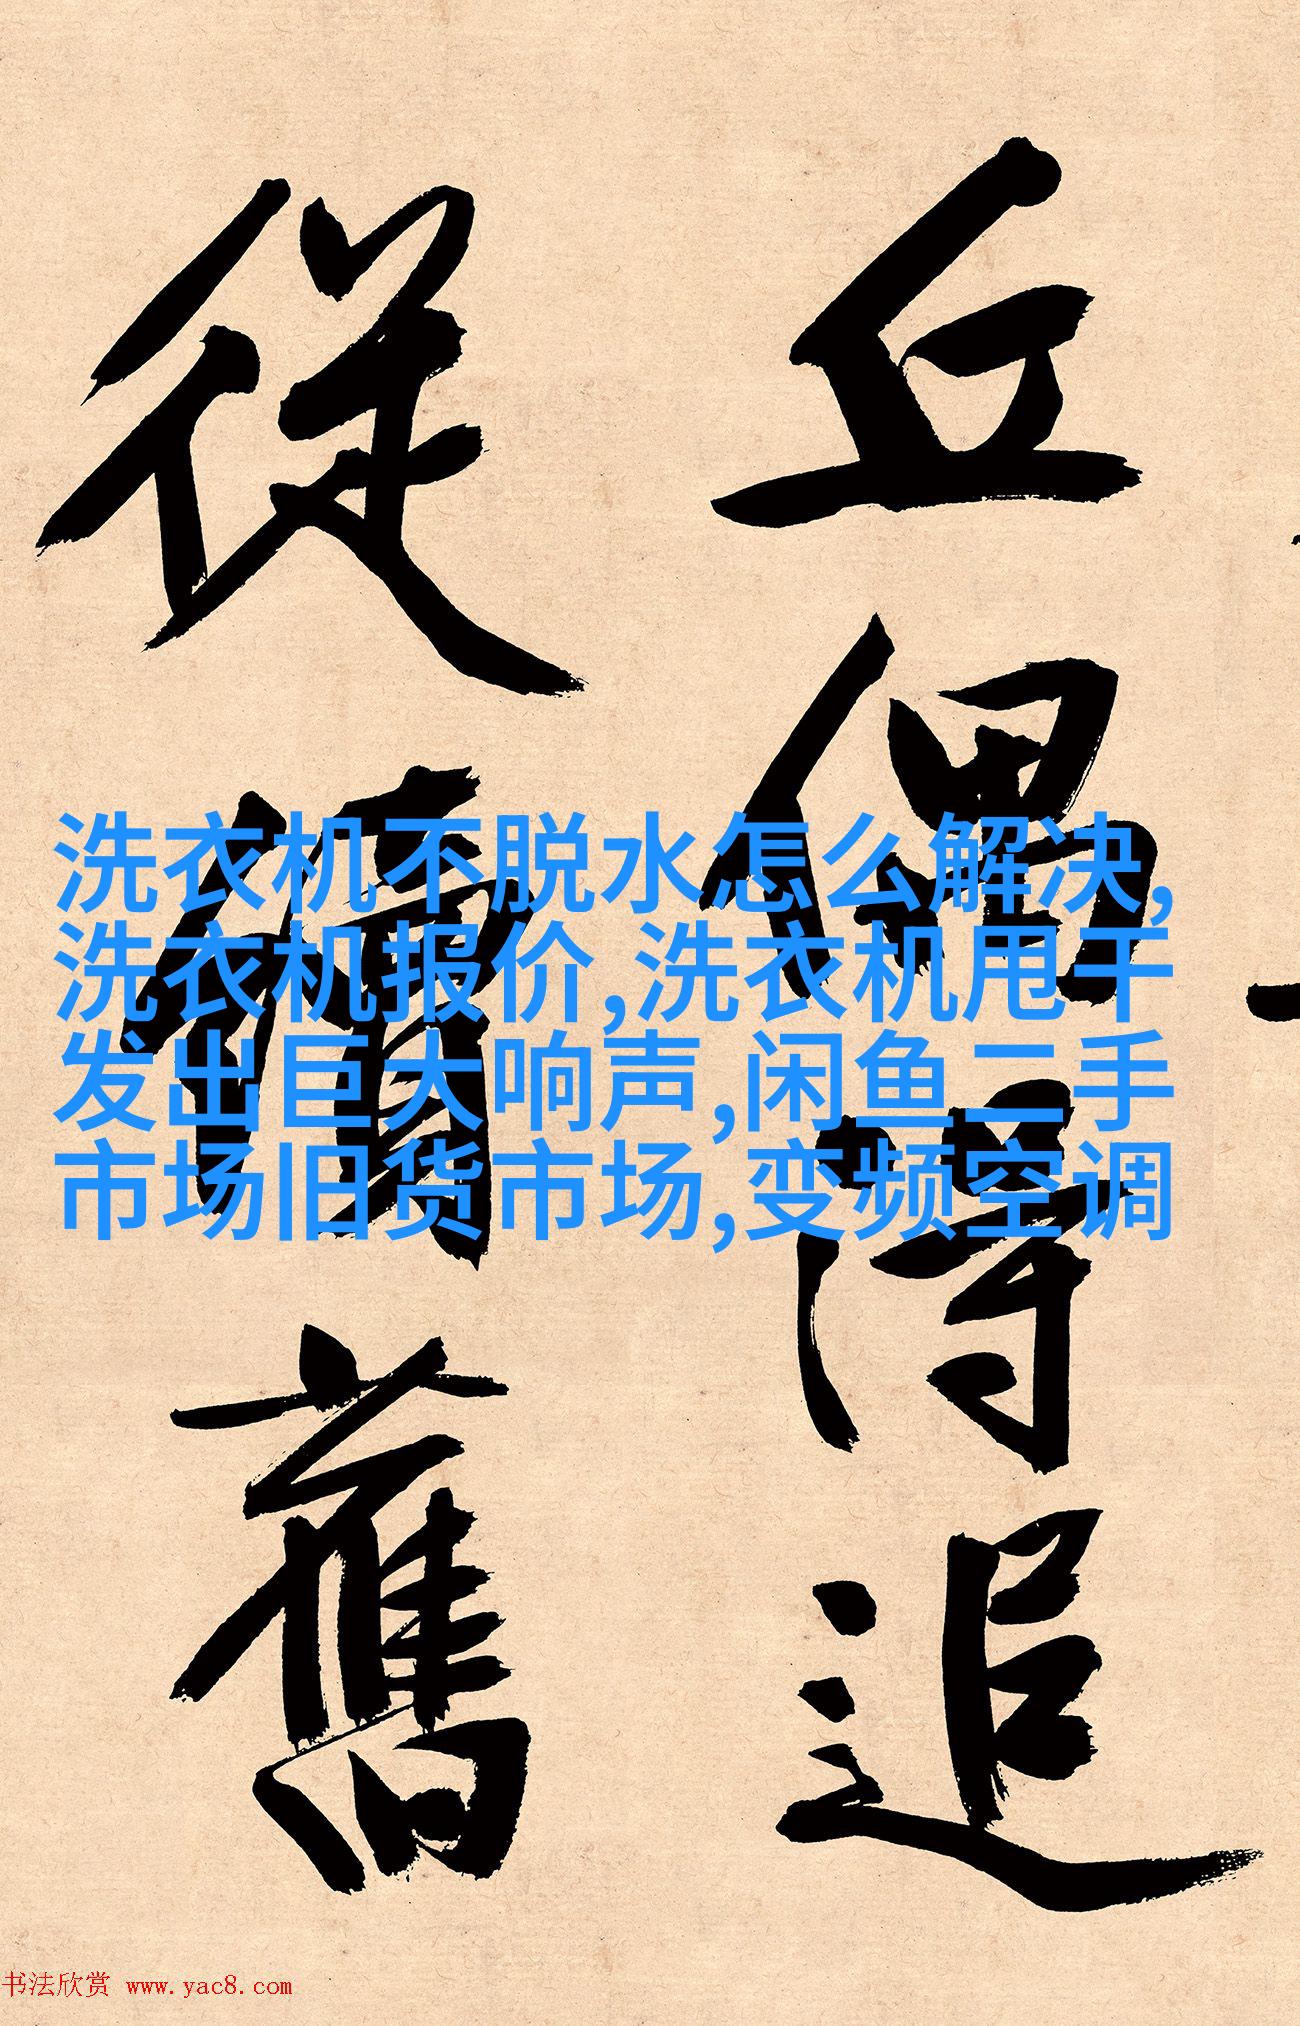 丘偶得追
從續舊
洗衣机不脱水怎么解决,
洗衣机报价,洗衣机甩干
发出巨大响声,闲鱼二手
市场旧货市场,变频空调
书法欣赏 www.yac8.com